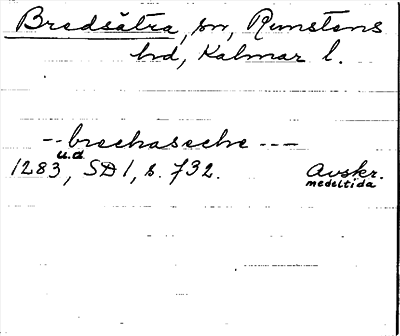 Bredsätra, sn, Runstens
hd, Kalmar l.
-- brethasethe ---
u.d.
1283, SD 1, s. 732. Avskr.
medeltida